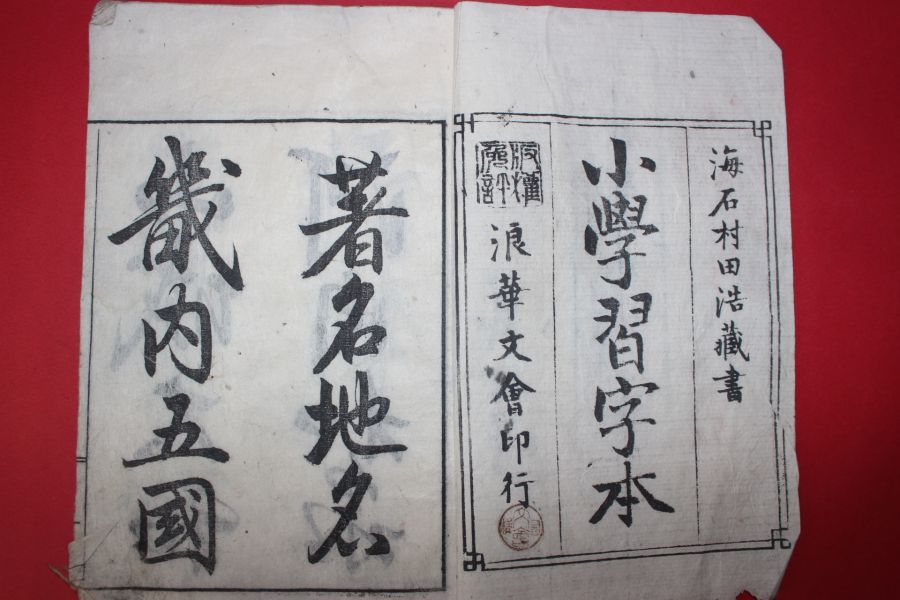 海石村田浩藏書
小學習字本
版權免許
浪華文會印行
著名地名
畿内五國